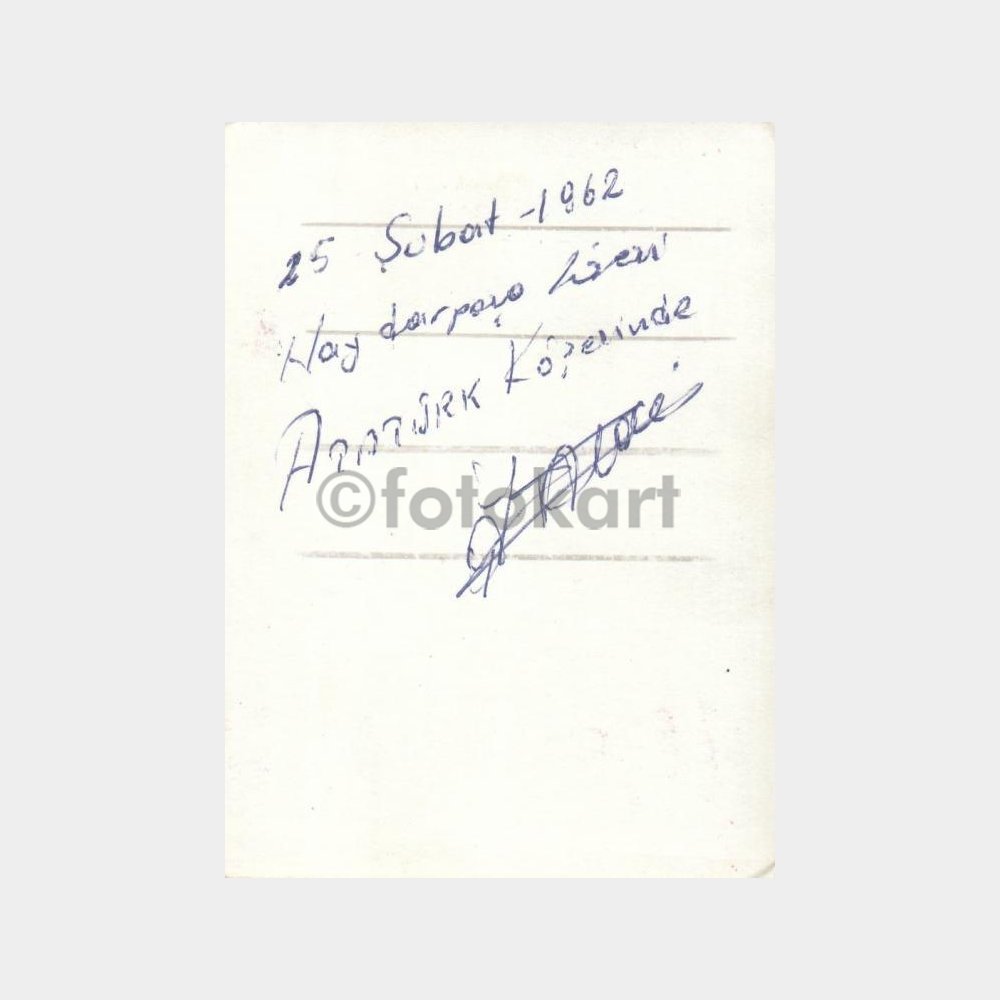 25 Şubat - 1962
Haydarpaşa Lisesi
ATATÜRK Köşesinde
©fotokart